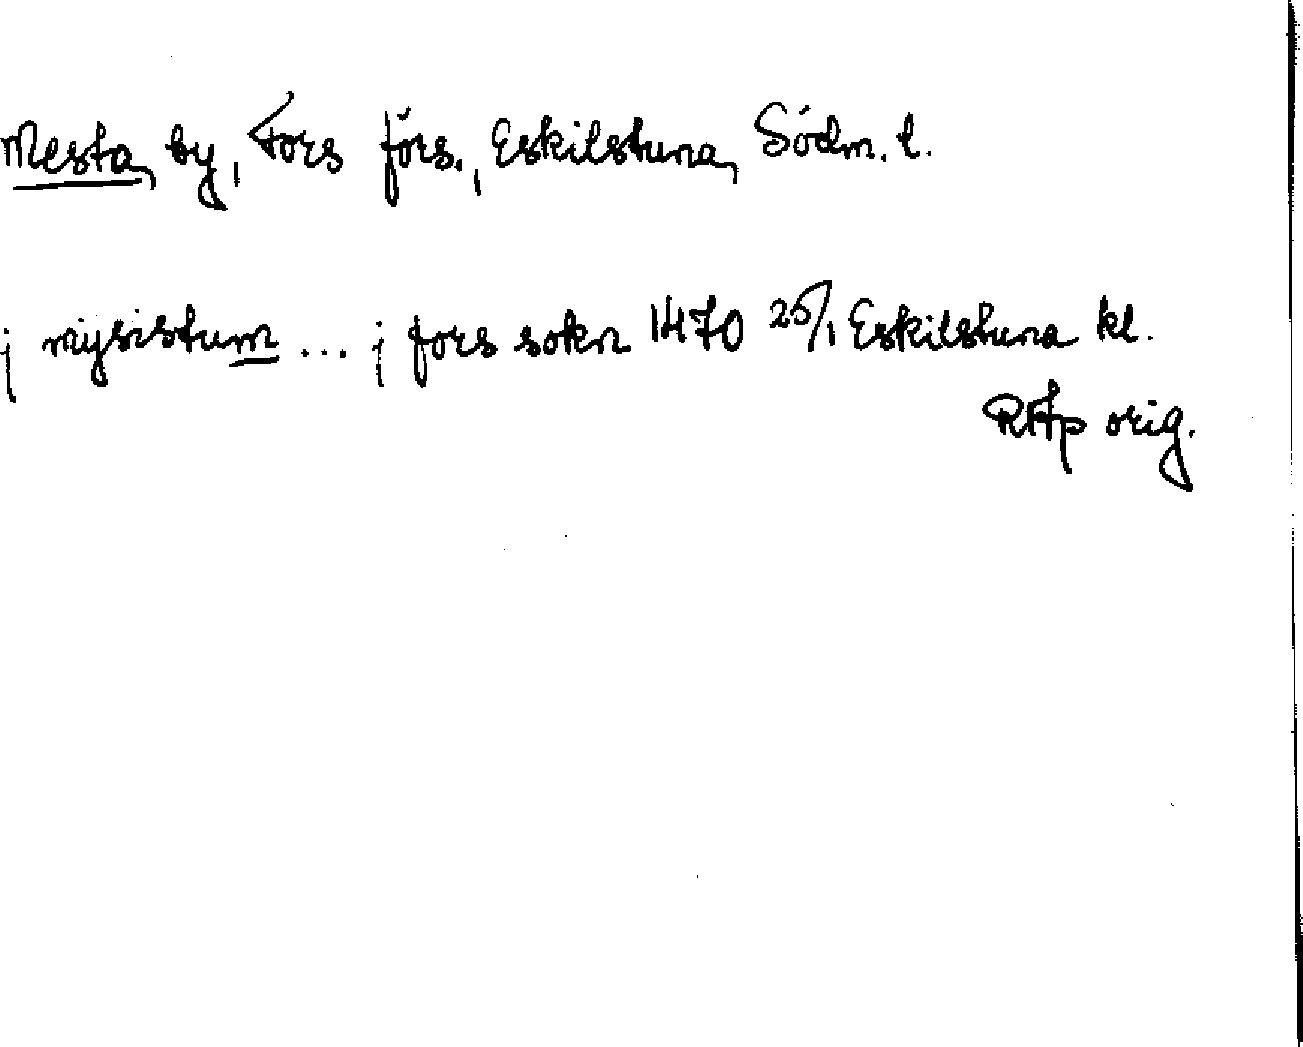 Mesta, by, Fors förs., Eskilstuna, Södm. l.
j mysistum ... j fors sokn 1470 25/1 Eskilstuna kl.
RAp orig.